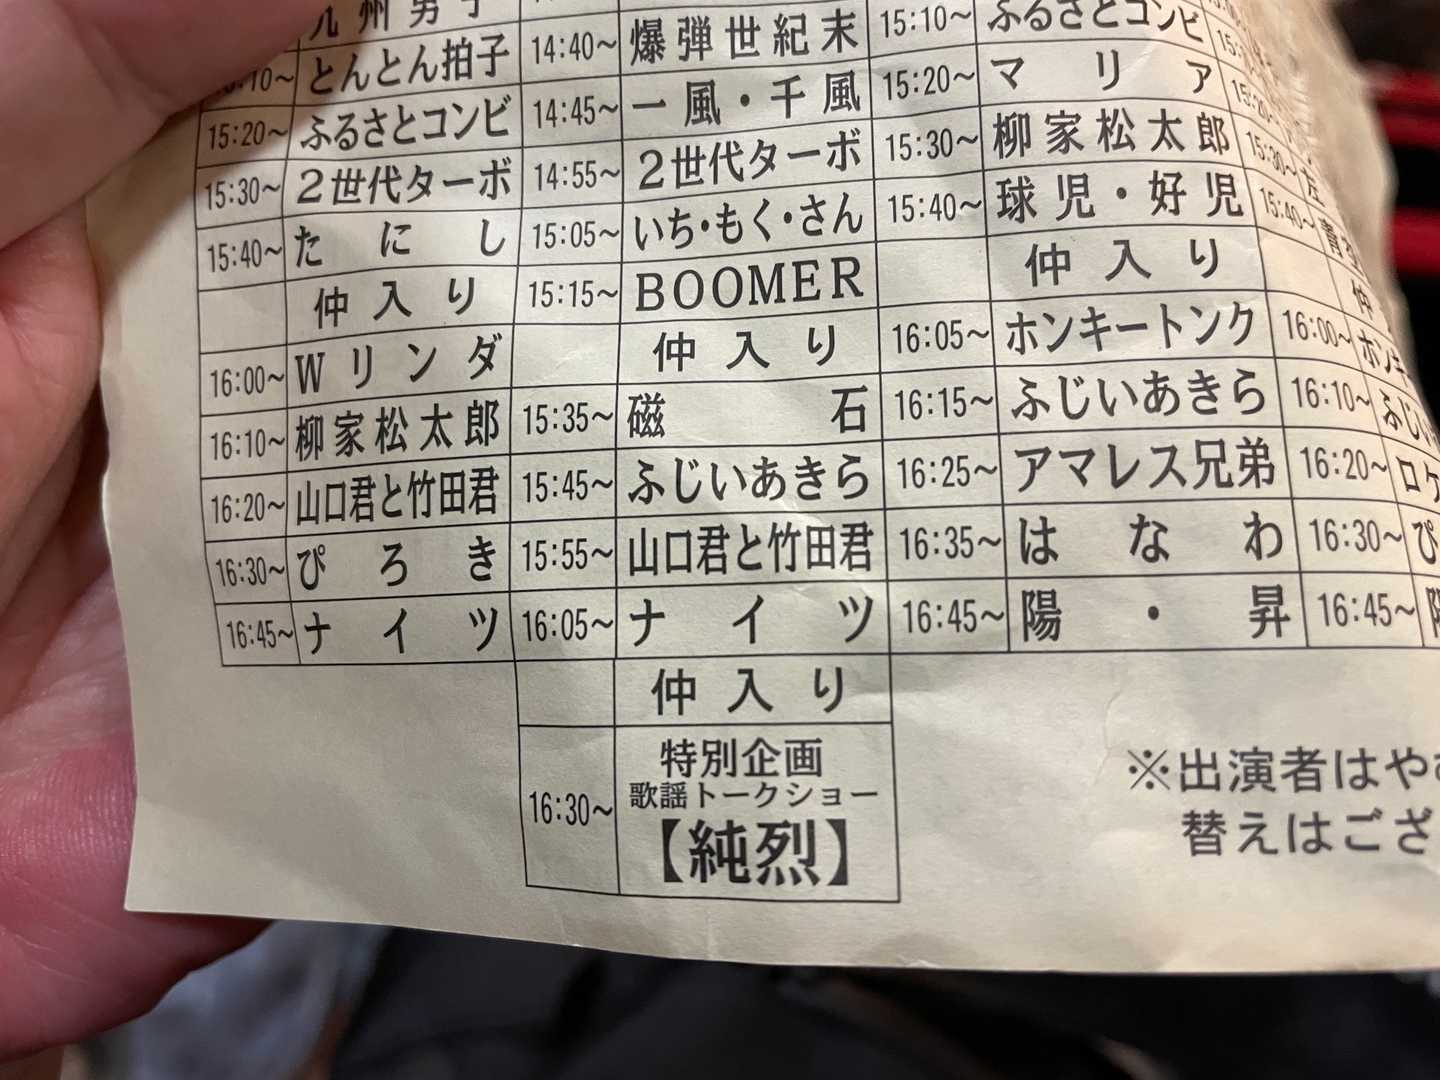 九州男子
とんとん拍子
15:20～ ふるさとコンビ
15:30～ 2世代ターボ
15:40～ たにし
仲入り
16:00～ Wリンダ
16:10～ 柳家松太郎
16:20～ 山口君と竹田君
16:30～ ぴろき
16:45～ ナイツ
14:40～ 爆弾世紀末
14:45～ 一風・千風
14:55～ 2世代ターボ
15:05～ いち・もく・さん
15:15～ BOOMER
仲入り
15:35～ 磁石
15:45～ ふじいあきら
15:55～ 山口君と竹田君
16:05～ ナイツ
仲入り
16:30～ 特別企画
歌謡トークショー
【純烈】
15:10～ ふるさとコンビ
15:20～ マリア
15:30～ 柳家松太郎
15:40～ 球児・好児
仲入り
16:05～ ホンキートンク
16:15～ ふじいあきら
16:25～ アマレス兄弟
16:35～ はなわ
16:45～ 陽・昇
15:20～
15:30～
15:40～ 青空
仲
16:00～ ホンキ
16:10～ ふじい
16:20～ ロケ
16:30～ ぴ
16:45～
※出演者はや
替えはござ